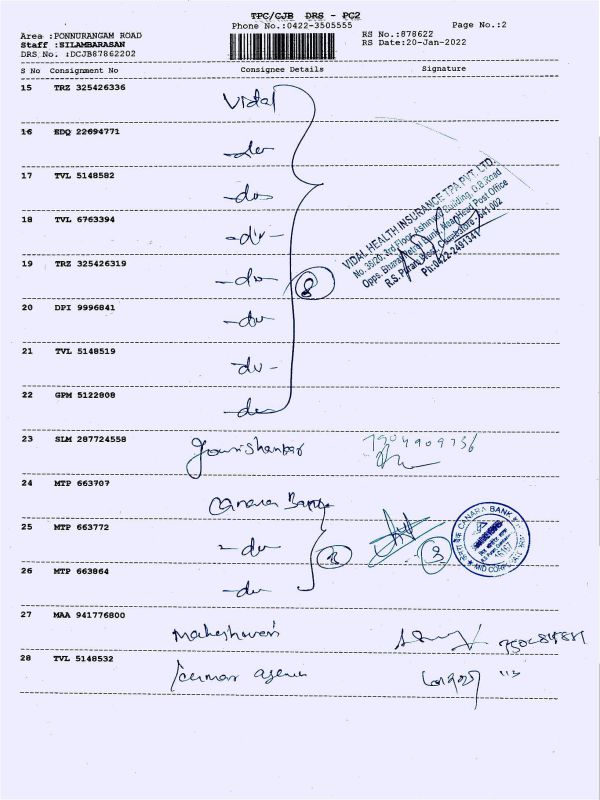 TPC/CJB DRS - PC2
Phone No.:0422-3505555 Page No.:2
Area :PONNURANGAM ROAD RS No.:878622
Staff :SILAMBARASAN RS Date:20-Jan-2022
DRS No. :DCJB87862202
S No Consignment No Consignee Details Signature
15 TRZ 325426336 Vidal
16 EDQ 22694771 -do-
17 TVL 5148582 -do-
18 TVL 6763394 -do-
VIDAL HEALTH INSURANCE TPA PVT. LTD.
No. 35/20, 3rd Floor, Building, D.B.Road
Opps. Near Head Post Office
R.S. Puram West, Coimbatore-641 002
Ph:0422-2491341
19 TRZ 325426319 -do- 8
20 DPI 9996841 -do-
21 TVL 5148519 -do-
22 GPM 5122808 -do-
23 SLM 287724558 Gowrishankar
24 MTP 663707 Canara Bank
25 MTP 663772 -do- 3
CANARA BANK
26 MTP 663864 -do-
27 MAA 941776800 Maheshwari
28 TVL 5148532